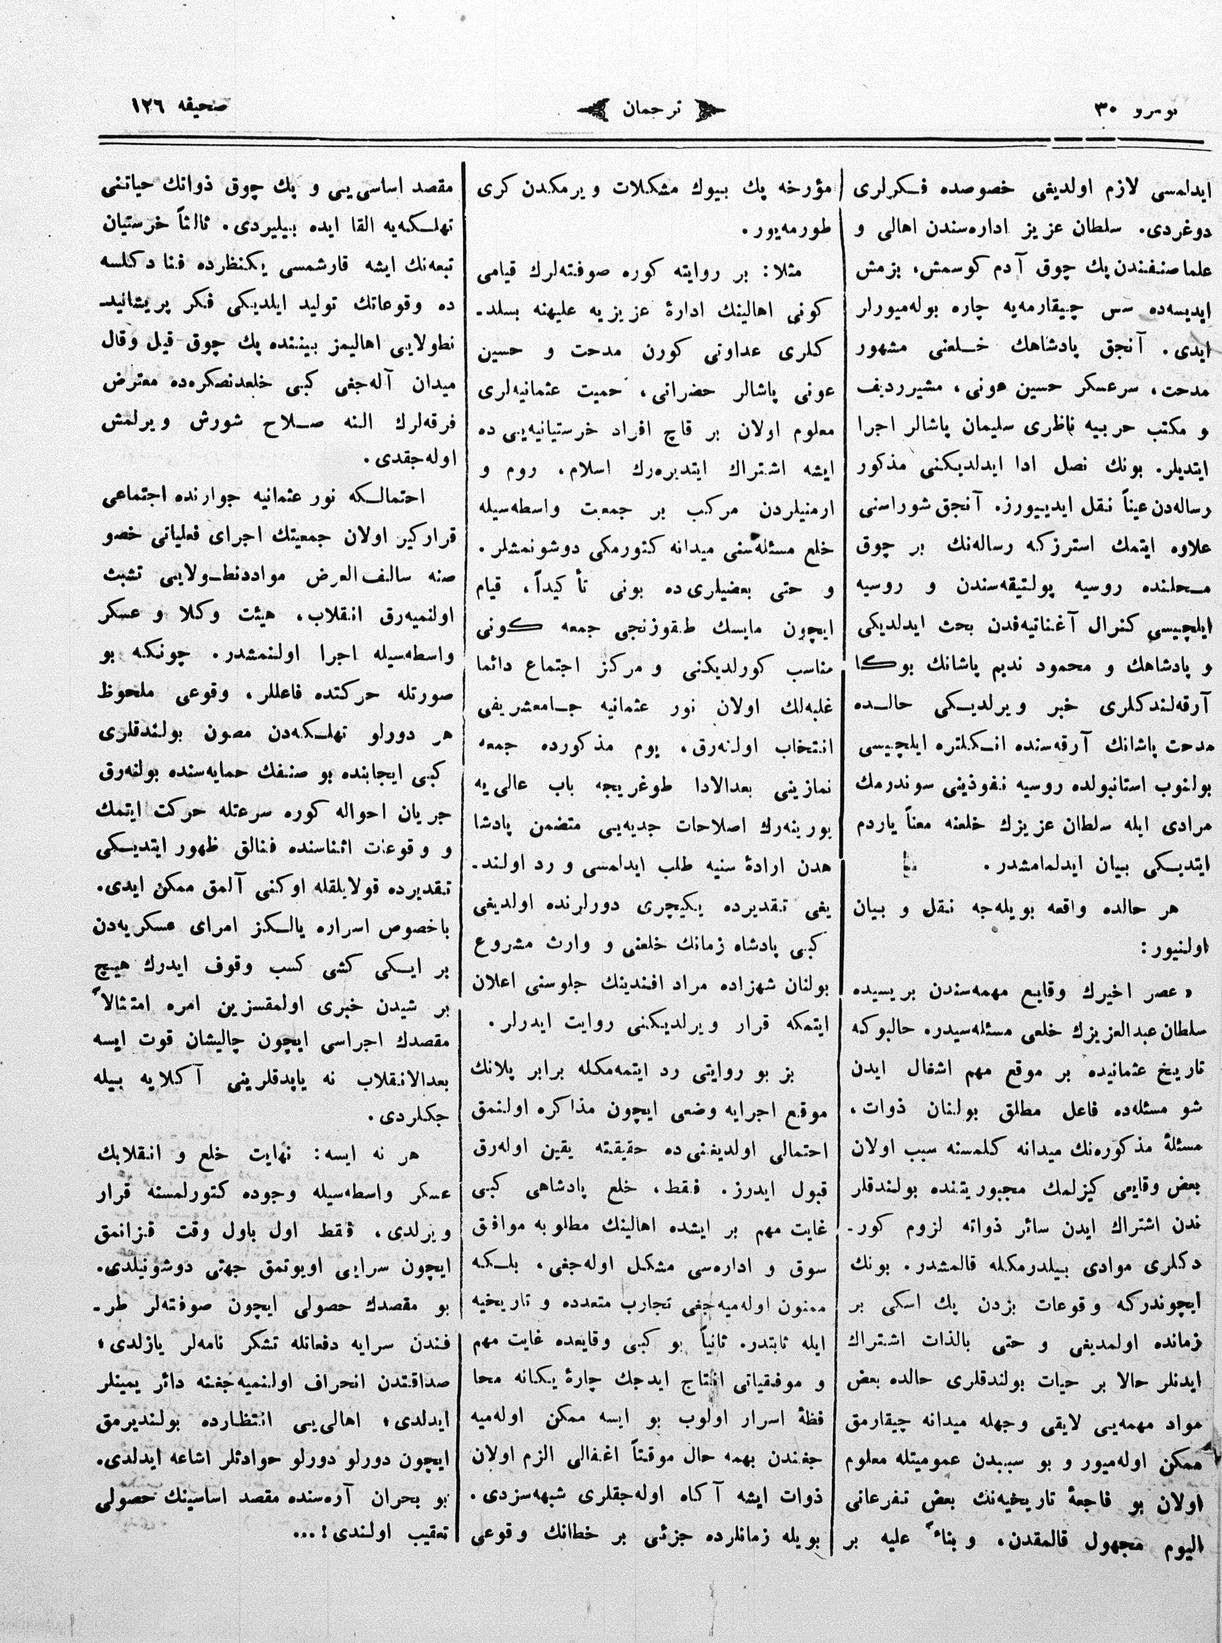 نومرو ٣٠
ترجمان
صحيفه ١٢٦
ايدلمسى لازم اولديغى خصوصده فكرلرى
دوغردى. سلطان عزيز اداره‌سندن اهالى و
علما صنفندن پك چوق آدم كوسمش، بزمش
ايديسه‌ده سس چيقارمه‌يه چاره بوله‌ميورلر
ايدى. آنجق پادشاهك خلعنى مشهور
مدحت، سرعسكر حسين عونى، مشير رديف
و مكتب حربيه ناظرى سليمان پاشالر اجرا
ايتديلر. بونك نصل ادا ايدلديكنى مذكور
رساله‌دن عيناً نقل ايدييورز. آنجق شوراسنى
علاوه ايتمك استرزكه رساله‌نك بر چوق
محلنده روسيه پولتيقه‌سندن و روسيه
ايلچيسى كنرال آغناتيه‌فدن بحث ايدلديكى
و پادشاهك و محمود نديم پاشانك بوكا
آرقه‌لندكلرى خبر ويرلديكى حالده
مدحت پاشانك آرقه‌سنده انكلتره ايلچيسى
بولنوب استانبولده روسيه نفوذينى سوندرمك
مرادى ايله سلطان عزيزك خلعنه معناً ياردم
ايتديكى بيان ايدلمامشدر.
هر حالده واقعه بويله‌جه نقل و بيان
اولنيور:
« عصر اخيرك وقايع مهمه‌سندن بريسيده
سلطان عبدالعزيزك خلعى مسئله‌سيدر. حالبوكه
تاريخ عثمانيده بر موقع مهم اشغال ايدن
شو مسئله‌ده فاعل مطلق بولنان ذوات،
مسئلهٔ مذكوره‌نك ميدانه كلمسنه سبب اولان
بعض وقايعى كيزلمك مجبوريتنده بولندقلر
ندن اشتراك ايدن سائر ذواته لزوم كور-
دكلرى موادى بيلدرمكله قالمشدر. بونك
ايچوندركه وقوعات بزدن پك اسكى بر
زمانده اولمديغى و حتى بالذات اشتراك
ايدنلر حالا بر حيات بولندقلرى حالده بعض
مواد مهمه‌يى لايقى وجهله ميدانه چيقارمق
ممكن اوله‌ميور و بو سببدن عموميتله معلوم
اولان بو فاجعهٔ تاريخيه‌نك بعض تفرعاتى
اليوم مجهول قالمقدن، و بناءً عليه بر
مؤرخه پك بيوك مشكلات ويرمكدن كرى
طورمه‌يور.
مثلا: بر روايته كوره صوفته‌لرك قيامى
كونى اهالينك ادارهٔ عزيزيه عليهنه بسلد-
كلرى عداوتى كورن مدحت و حسين
عونى پاشالر حضراتى، حميت عثمانيه‌لرى
معلوم اولان بر قاچ افراد خرستيانيه‌يى ده
ايشه اشتراك ايتديره‌رك اسلام، روم و
ارمنيلردن مركب بر جمعيت واسطه‌سيله
خلع مسئله‌سنى ميدانه كتورمكى دوشونمشلر.
و حتى بعضيلرى‌ده بونى تأكيداً، قيام
ايچون مايسك طقوزنجى جمعه كونى
مناسب كورلديكنى و مركز اجتماع دائما
غلبه‌لك اولان نور عثمانيه جامع‌شريفى
انتخاب اولنه‌رق، يوم مذكورده جمعه
نمازينى بعدالادا طوغريجه باب عالى‌يه
يورينه‌رك اصلاحات جديه‌يى متضمن پادشا
هدن ارادهٔ سنيه طلب ايدلمسى و رد اولند-
يغى تقديرده يكيچرى دورلرنده اولديغى
كبى پادشاه زمانك خلعنى و وارث مشروع
بولنان شهزاده مراد افندينك جلوسنى اعلان
ايتمكه قرار ويرلديكنى روايت ايدرلر.
بز بو روايتى رد ايتمه‌مكله برابر پلانك
موقع اجرايه وضعى ايچون مذاكره اولنمق
احتمالى اولديغنى‌ده حقيقته يقين اوله‌رق
قبول ايدرز. فقط، خلع پادشاهى كبى
غايت مهم بر ايشده اهالينك مطلوبه موافق
سوق و اداره‌سى مشكل اوله‌جغى، بلكه
ممنون اوله‌ميه‌جغى تجارب متعدده و تاريخيه
ايله ثابتدر. ثانياً بو كبى وقايعده غايت مهم
و موفقياتى انتاج ايدجك چارهٔ يكانه محا
فظهٔ اسرار اولوب بو ايسه ممكن اوله‌ميه
جغندن بهمه حال موقتاً اغفالى الزم اولان
ذوات ايشه آكاه اوله‌جقلرى شبهه‌سزدى.
بويله زمانلرده جزئى بر خطانك وقوعى
مقصد اساسى‌يى و پك چوق ذواتك حياتنى
تهلكه‌يه القا ايده بيليردى. ثالثاً خرستيان
تبعه‌نك ايشه قارشمسى يكنظرده فنا دكلسه
ده وقوعاتك توليد ايلديكى فكر پريشانيد
نطولايى اهاليمز بيننده پك چوق قيل وقال
ميدان آله‌جغى كبى خلعدنصكره‌ده معترض
فرقه‌لرك النه صلاح شورش ويرلمش
اوله‌جقدى.
احتمالكه نور عثمانيه جوارنده اجتماعى
قراركير اولان جمعيتك اجراى فعلياتى خصو
صنه سالف‌العرض مواددنطولايى تشبث
اولنميه‌رق انقلاب، هيئت وكلا و عسكر
واسطه‌سيله اجرا اولنمشدر. چونكه بو
صورتله حركتده فاعللر، وقوعى ملحوظ
هر دورلو تهلكه‌دن مصون بولندقلرى
كبى ايجابنده بو صنفك حمايه‌سنده بولنه‌رق
جريان احواله كوره سرعتله حركت ايتمك
و وقوعات اثناسنده فنالق ظهور ايتديكى
تقديرده قولايلقله اوكنى آلمق ممكن ايدى.
باخصوص اسراره يالكز امراى عسكريه‌دن
بر ايكى كشى كسب وقوف ايدرك هيچ
بر شيدن خبرى اولمقسزين امره امتثالاً
مقصدك اجراسى ايچون چاليشان قوت ايسه
بعدالانقلاب نه ياپدقلرينى آكلايه بيله
جكلردى.
هر نه ايسه: نهايت خلع و انقلابك
عسكر واسطه‌سيله وجوده كتورلمسنه قرار
ويرلدى، فقط اول باول وقت قزانمق
ايچون سرايى اويوتمق جهتى دوشونيلدى.
بو مقصدك حصولى ايچون صوفته‌لر طر-
فندن سرايه دفعاتله تشكر نامه‌لر يازلدى؛
صداقتدن انحراف اولنميه‌جغنه دائر يمينلر
ايدلدى؛ اهالى‌يى انتظارده بولنديرمق
ايچون دورلو دورلو حوادثلر اشاعه ايدلدى.
بو بحران آره‌سنده مقصد اساسينك حصولى
تعقيب اولندى!...